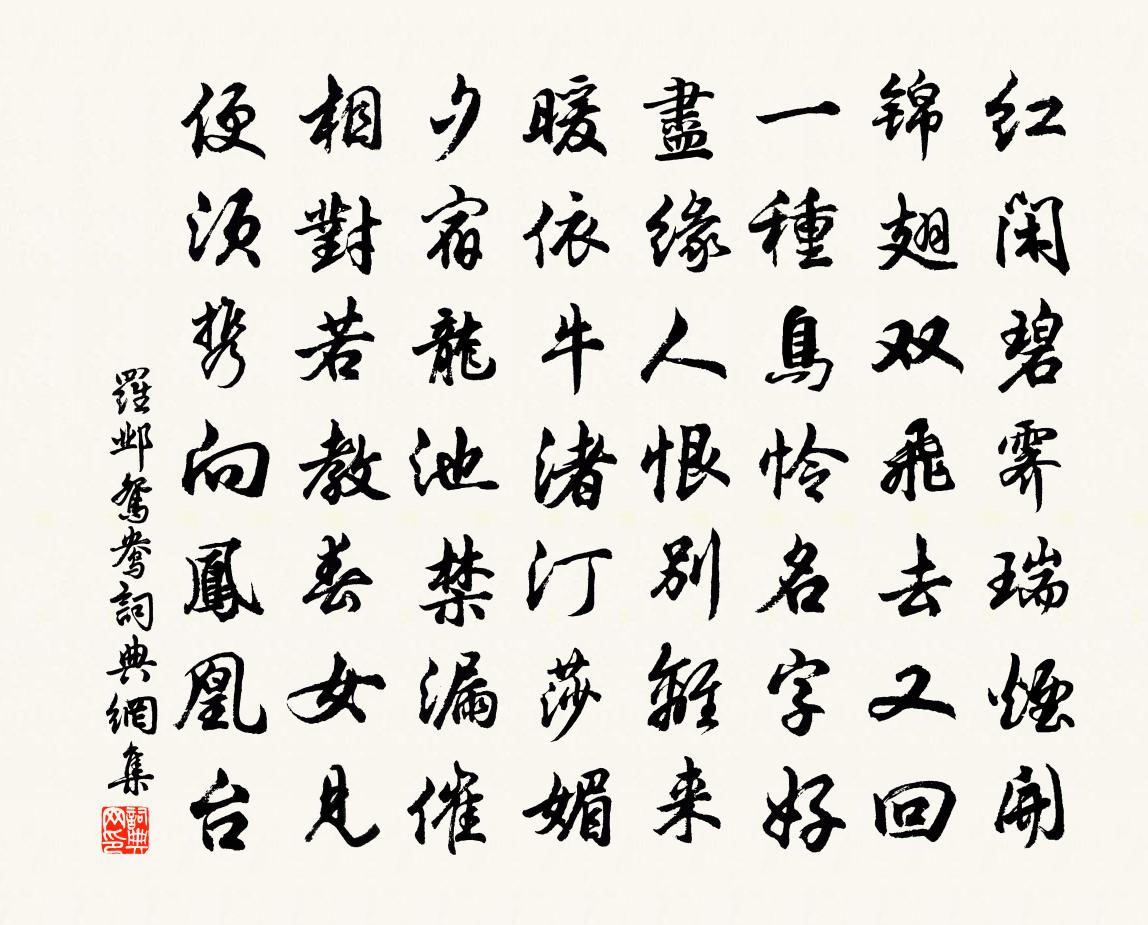 红闲碧霁瑞煙開
锦翅双飛去又回
一種鳥怜名字好
盡缘人恨别離来
暖依牛渚汀莎媚
夕宿龍池禁漏催
相對若教春女見
便须携向鳳凰台
羅邺鴛鴦詞典網集
詞典网印